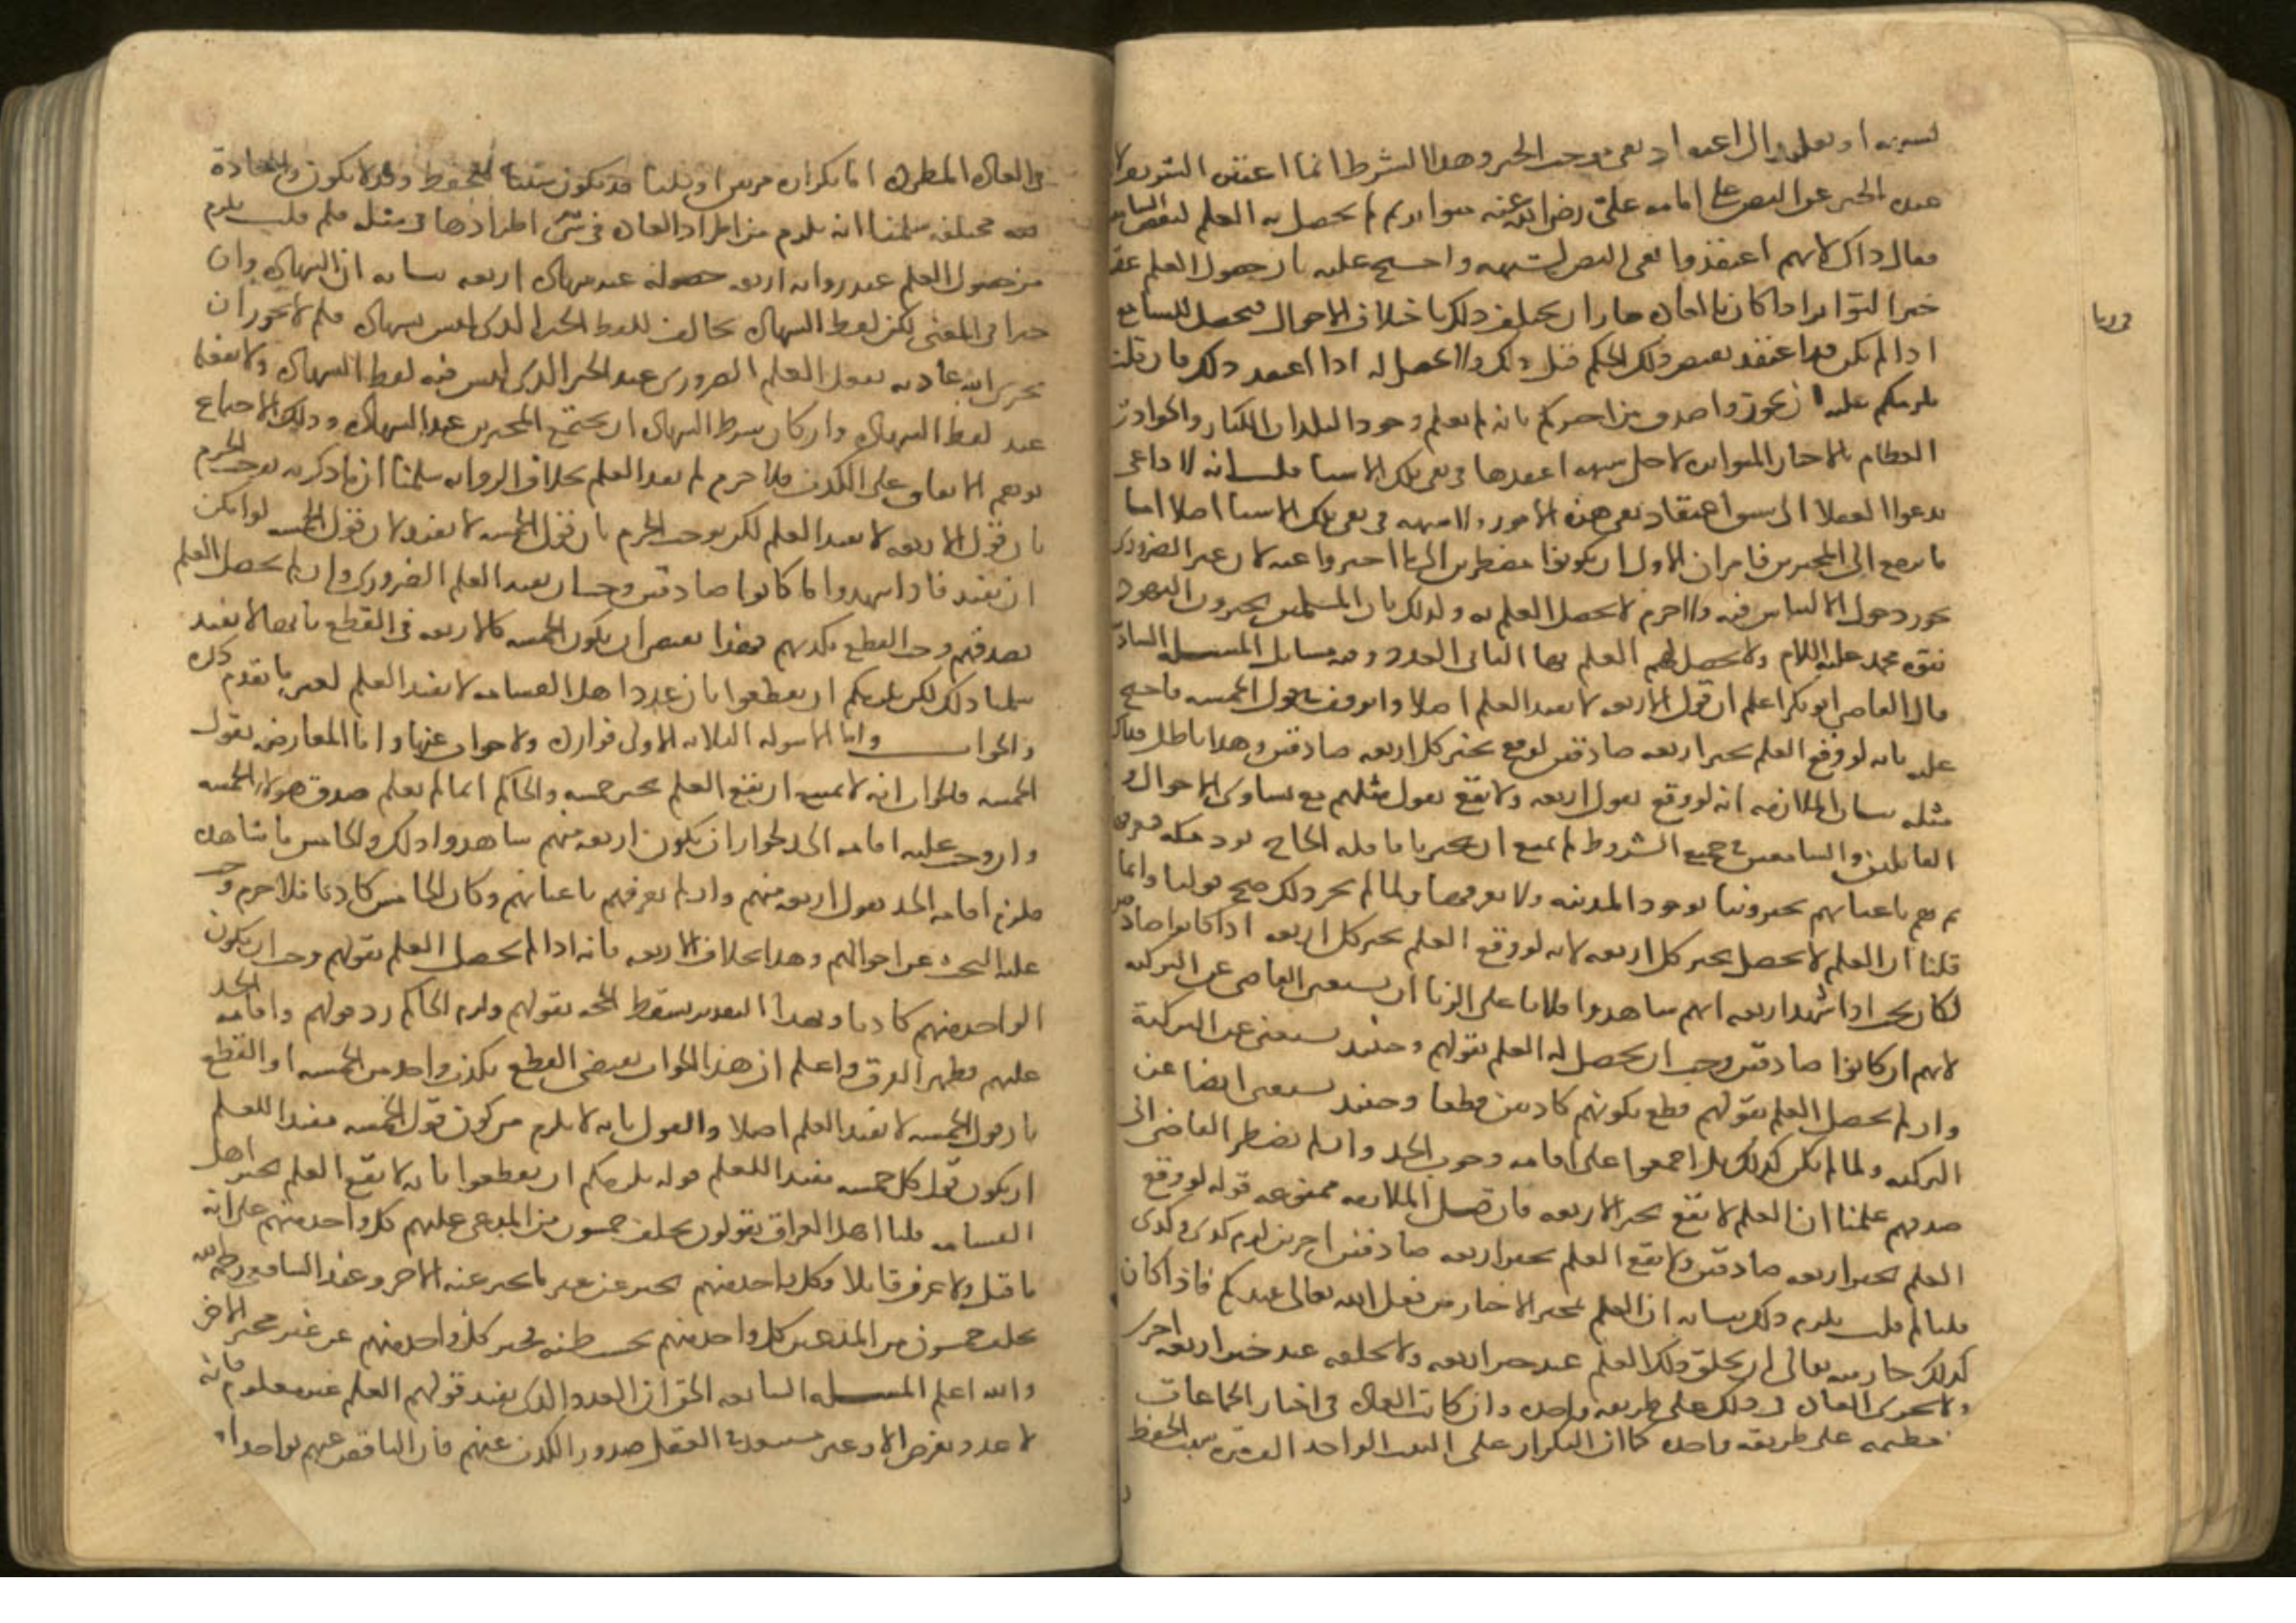 لشبهة او تقليد الى اعتقاد نفى موجب الخبر وهذا الشرط انما اعتبره الشريف لان
عنده الخبر عن النص على امامة على رضى الله عنه متواتر ثم لم يحصل به العلم لبعض السامعين
فقال ذاك لانهم اعتقدوا نفى النص لشبهة واحتج عليه بان حصول العلم عقيب
خبر التواتر اذا كان بالعادة جاز ان يختلف ذلك باختلاف الاحوال فيحصل للسامع
اذا لم يكن قد اعتقد نقيض ذلك الحكم قبل ذلك ولا يحصل له اذا اعتقد ذلك فان قلت
يلزمكم عليه ان تجوزوا صدق من اخبركم بانه لم يعلم وجود البلدان الكبار والحوادث
العظام بالاخبار المتواترة لاجل شبهة اعتقدها فى نفى تلك الاشيا قلت انه لا داعى
يدعوا العقلا الى سبق اعتقاد نفى هذه الامور ولا شبهة فى نفى تلك الاشيا اصلا اما
ما يرجع الى المخبرين فامران الاول ان يكونوا مضطرين الى ما اخبروا عنه لان غير الضرورى
يجوز دخول الالتباس فيه ولا جرم لا يحصل العلم به ولذلك فان المسلمين يخبرون اليهود
بنبوة محمد عليه السلام ولا يحصل لهم العلم بها الثانى العدد وفيه مسايل المسلة السادسة
قال القاضى ابو بكر اعلم ان قول الاربعة لا يفيد العلم اصلا واتوقف فى قول الخمسة واحتج
عليه بانه لو وقع العلم بخبر اربعة صادقين لوقع بخبر كل اربعة صادقين وهذا باطل فذاك
مثله بيان الملازمة انه لو وقع بقول اربعة ولا يقع بقول مثلهم مع تساوى الاحوال و
القايلين والسامعين فى جميع الشروط لم يمتنع ان يخبرنا قافلة الحاج بوجود مكة فنعرفها
ثم هم باعيانهم يخبروننا بوجود المدينة ولا نعرفها ولما لم يجز ذلك صح قولنا وانما
قلنا ان العلم لا يحصل بخبر كل اربعة لانه لو وقع العلم بخبر كل اربعة اذا كانوا صادقين
لكان يجب اذا شهد اربعة انهم شاهدوا فلانا على الزنا ان يستغنى القاضى عن التزكية
لانهم ان كانوا صادقين وجب ان يحصل له العلم بقولهم وحينئذ يستغنى عن التزكية
وان لم يحصل العلم بقولهم قطع بكونهم كاذبين قطعا وحينئذ يستغنى ايضا عن
التزكية ولما لم يكن كذلك بل اجمعوا على اقامة وجوب الحد وان لم يضطر القاضى الى
صدقهم علمنا ان العلم لا يقع بخبر الاربعة فان قيل الملازمة ممنوعة قوله لو وقع
العلم بخبر اربعة صادقين ولا يقع العلم بخبر اربعة صادقين اخرين لزم كذى وكذى
قلنا لم قلت يلزم ذلك بيانه ان العلم بمخبر الاخبار من فعل الله تعالى عندكم فاذا كان
كذلك جاز منه تعالى ان يخلق ذلك العلم عند خبر اربعة ولا يخلقه عند خبر اربعة اخرى
ولا تجرى العادة فى ذلك على طريقة واحدة وان كانت العادة فى اخبار الجماعات
عظيمة على طريقة واحدة كما ان التكرار على البيت الواحد الف مرة سبب لحفظه
فى ربا
فى العادة المطردة اما تكراره مرتين او ثلثا قد يكون سببا للحفظ وقد لا يكون والعادة
فيه مختلفة سلمنا انه يلزم من اطراد العادة فى شى اطرادها فى مثله فلم قلت يلزم
من حصول العلم عند رواية اربعة حصوله عند شهادة اربعة بيانه ان الشهادة وان
خبرا فى المعنى لكن لفظ الشهادة يخالف للفظ الخبر الذى ليس بشهادة فلم لا يجوز ان
يجرى الله عادته بفعل العلم الضرورى عند الخبر الذى ليس فيه لفظ الشهادة ولا يفعله
عند لفظ الشهادة وان كان شرط الشهادة ان يجتمع المخبرين عند الشهادة وذلك الاجتماع
توهم الاتفاق على الكذب فلا جرم لم يفد العلم بخلاف الرواية سلمنا ان ما ذكرته يوجب الجزم
بان قول الاربعة لا يفيد العلم لكن يوجب الجزم بان قول الخمسة لا يفيد لان قول الخمسة لو امكن
ان يفيد فاذا شهدوا لما كانوا صادقين وجب ان يفيد العلم الضرورى وان لم يحصل العلم
بصدقهم وجب القطع بكذبهم فهذا يقتضى ان يكون الخمسة كالاربعة فى القطع بانها لا تفيد
سلمنا ذلك لكن يلزمكم ان يقطعوا بان عدد اهل القسامة لا يفيد العلم لعين ما تقدم ذكره
والجواب واما الاسولة الثلاثة الاولى فواردة ولا جواب عنها واما المعارض بقول
الخمسة فالجواب انه لا يمتنع ان يقع العلم بخبر خمسة والحاكم اذا لم يعلم صدق هولا الخمسة
وان وجب عليه اقامة الحد لجواز ان يكون اربعة منهم شاهدوا ذلك والخامس ما شاهده
فلزم اقامة الحد بقول اربعة منهم وان لم يعرفهم باعيانهم وكان الخامس كاذبا فلا جرم وجب
عليه البحث عن احوالهم وهذا بخلاف الاربعة فانه اذا لم يحصل العلم بقولهم وجب ان يكون
الواحد منهم كاذبا وبهذا التقدير يسقط الحجة بقولهم ولزم الحاكم رد قولهم واقامة الحد
عليهم فظهر الفرق واعلم ان هذا الجواب يقتضى القطع بكذب واحد من الخمسة او القطع
بان قول الخمسة لا يفيد العلم اصلا والقول بانه لا يلزم من كون قول الخمسة مفيدا للعلم
ان يكون قول كل خمسة مفيدا للعلم قوله يلزمكم ان يقطعوا بانه لا يقع العلم بخبر اهل
القسامة قلنا اهل العراق يقولون يحلف خمسون من المدعى عليهم كل واحد منهم على انه
ما قتل ولا عرف قاتلا وكل واحد منهم يخبر عن غير ما يخبر عنه الاخر وعند الشافعى رحمه الله
يحلف خمسون من المدعين كل واحد منهم بحسب ظنه فخبر كل واحد منهم عن غير مخبر الاخر
والله اعلم المسلة السابعة الحق ان العدد الذى يفيد قولهم العلم غير معلوم فانه
لا عدد يفرض الا وغير مستبعد فى العقل صدور الكذب عنهم فان الناقص عنهم بواحد او